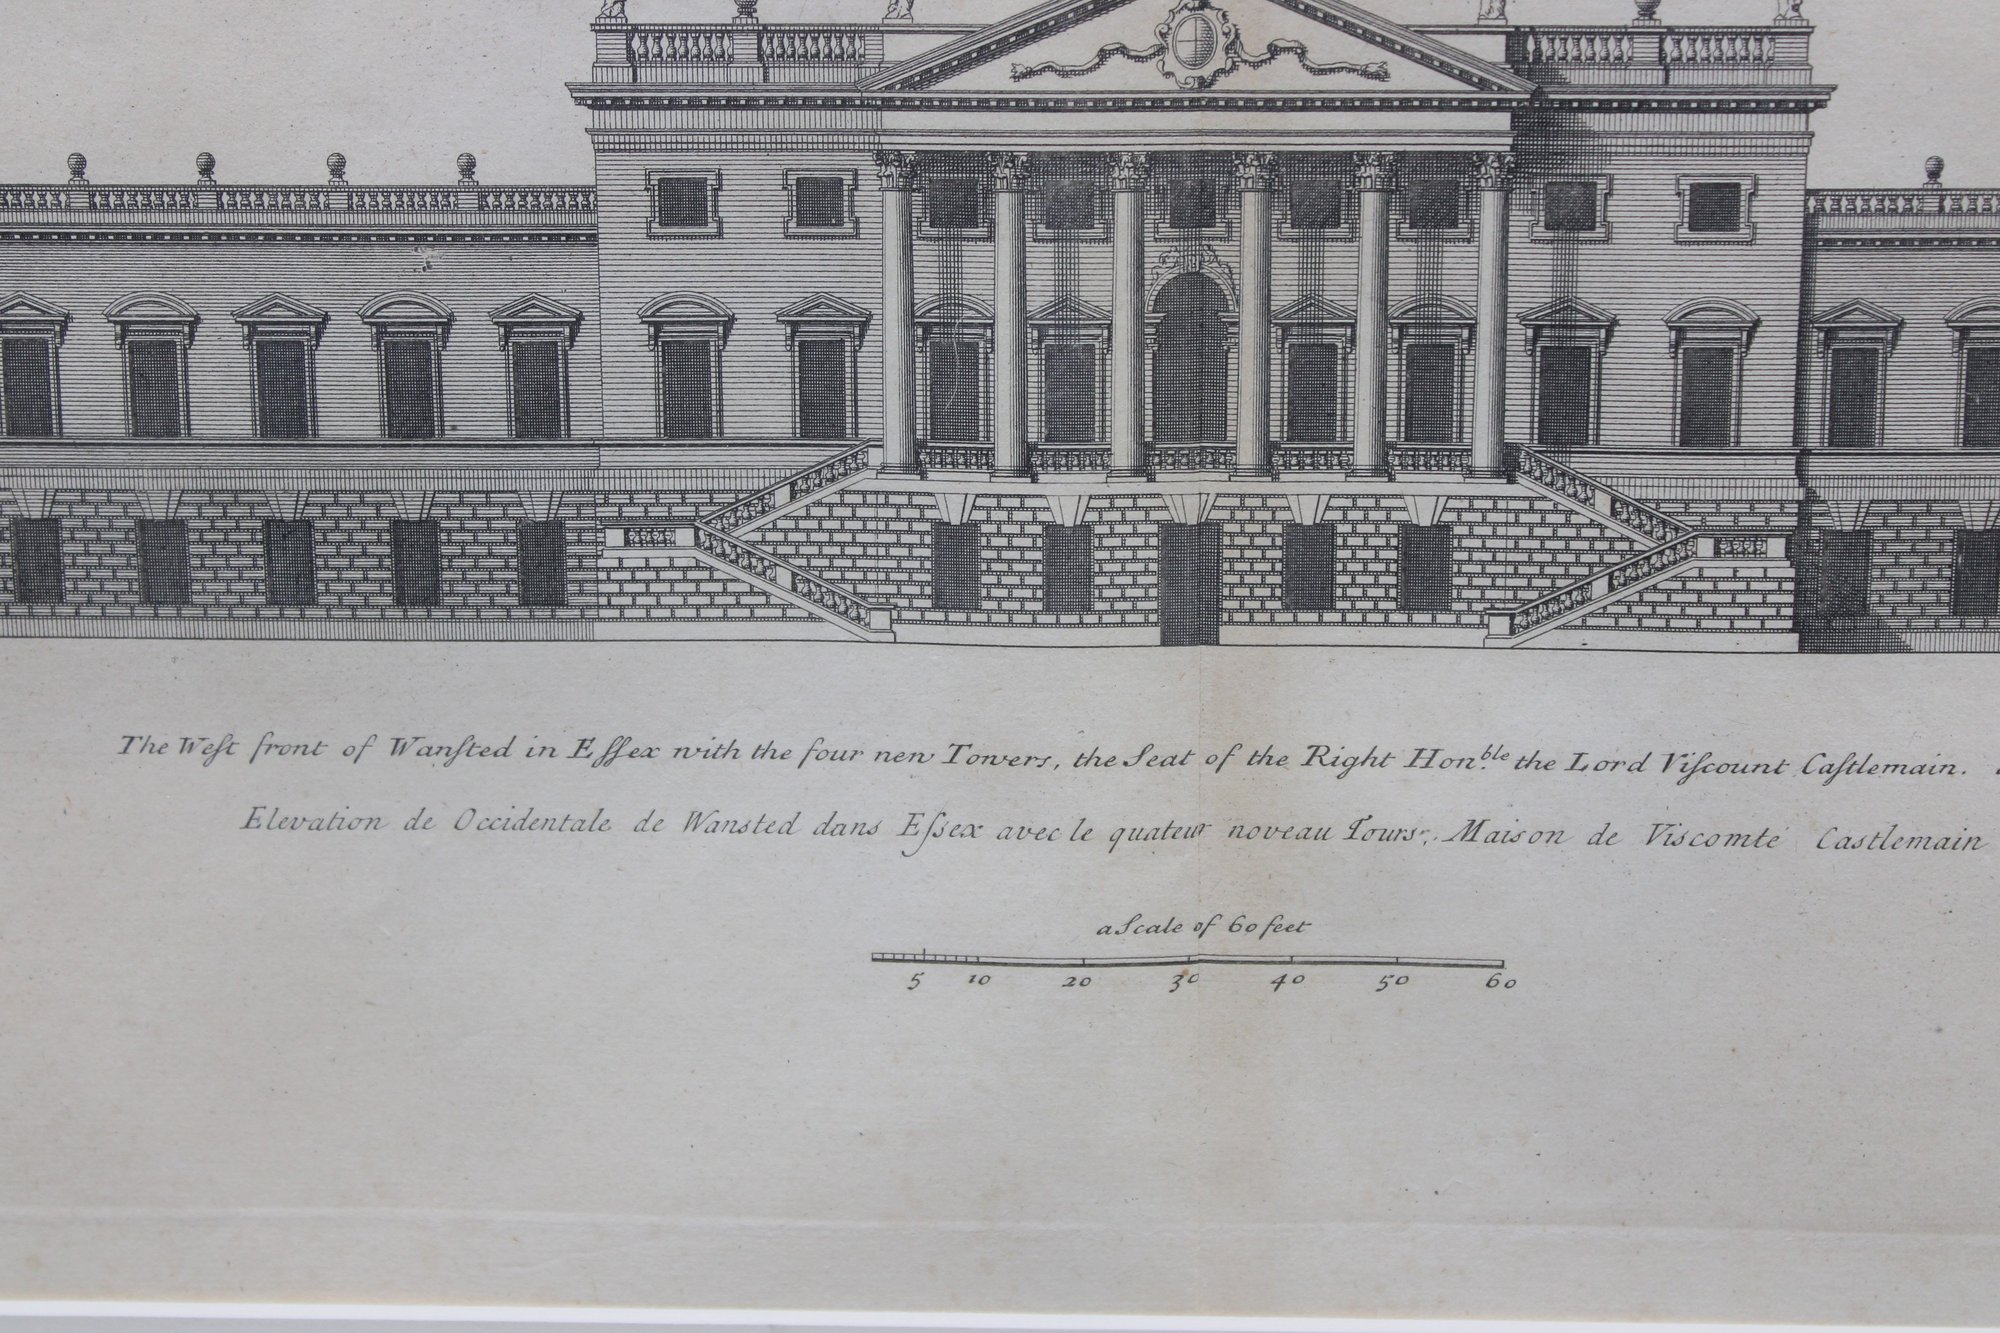 The Weſt front of Wanſted in Eſſex with the four new Towers, the Seat of the Right Hon.ble the Lord Viſcount Caſtlemain.
Elevation de Occidentale de Wansted dans Eſsex avec le quateur noveau Tours, Maison de Viscomté Castlemain
a Scale of 60 feet
5 10 20 30 40 50 60